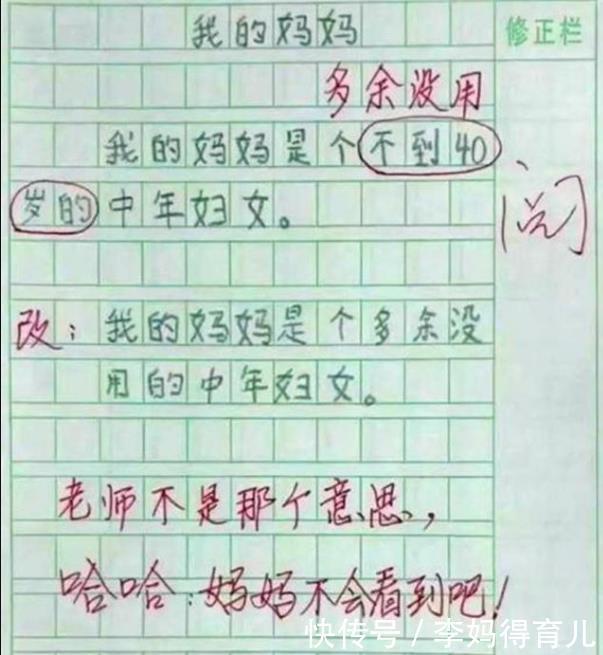 我的妈妈
修正栏
多余没用
我的妈妈是个不到40
岁的中年妇女。
阅
改：我的妈妈是个多余没
用的中年妇女。
老师不是那个意思，
哈哈：妈妈不会看到吧！
快传号／李妈得育儿